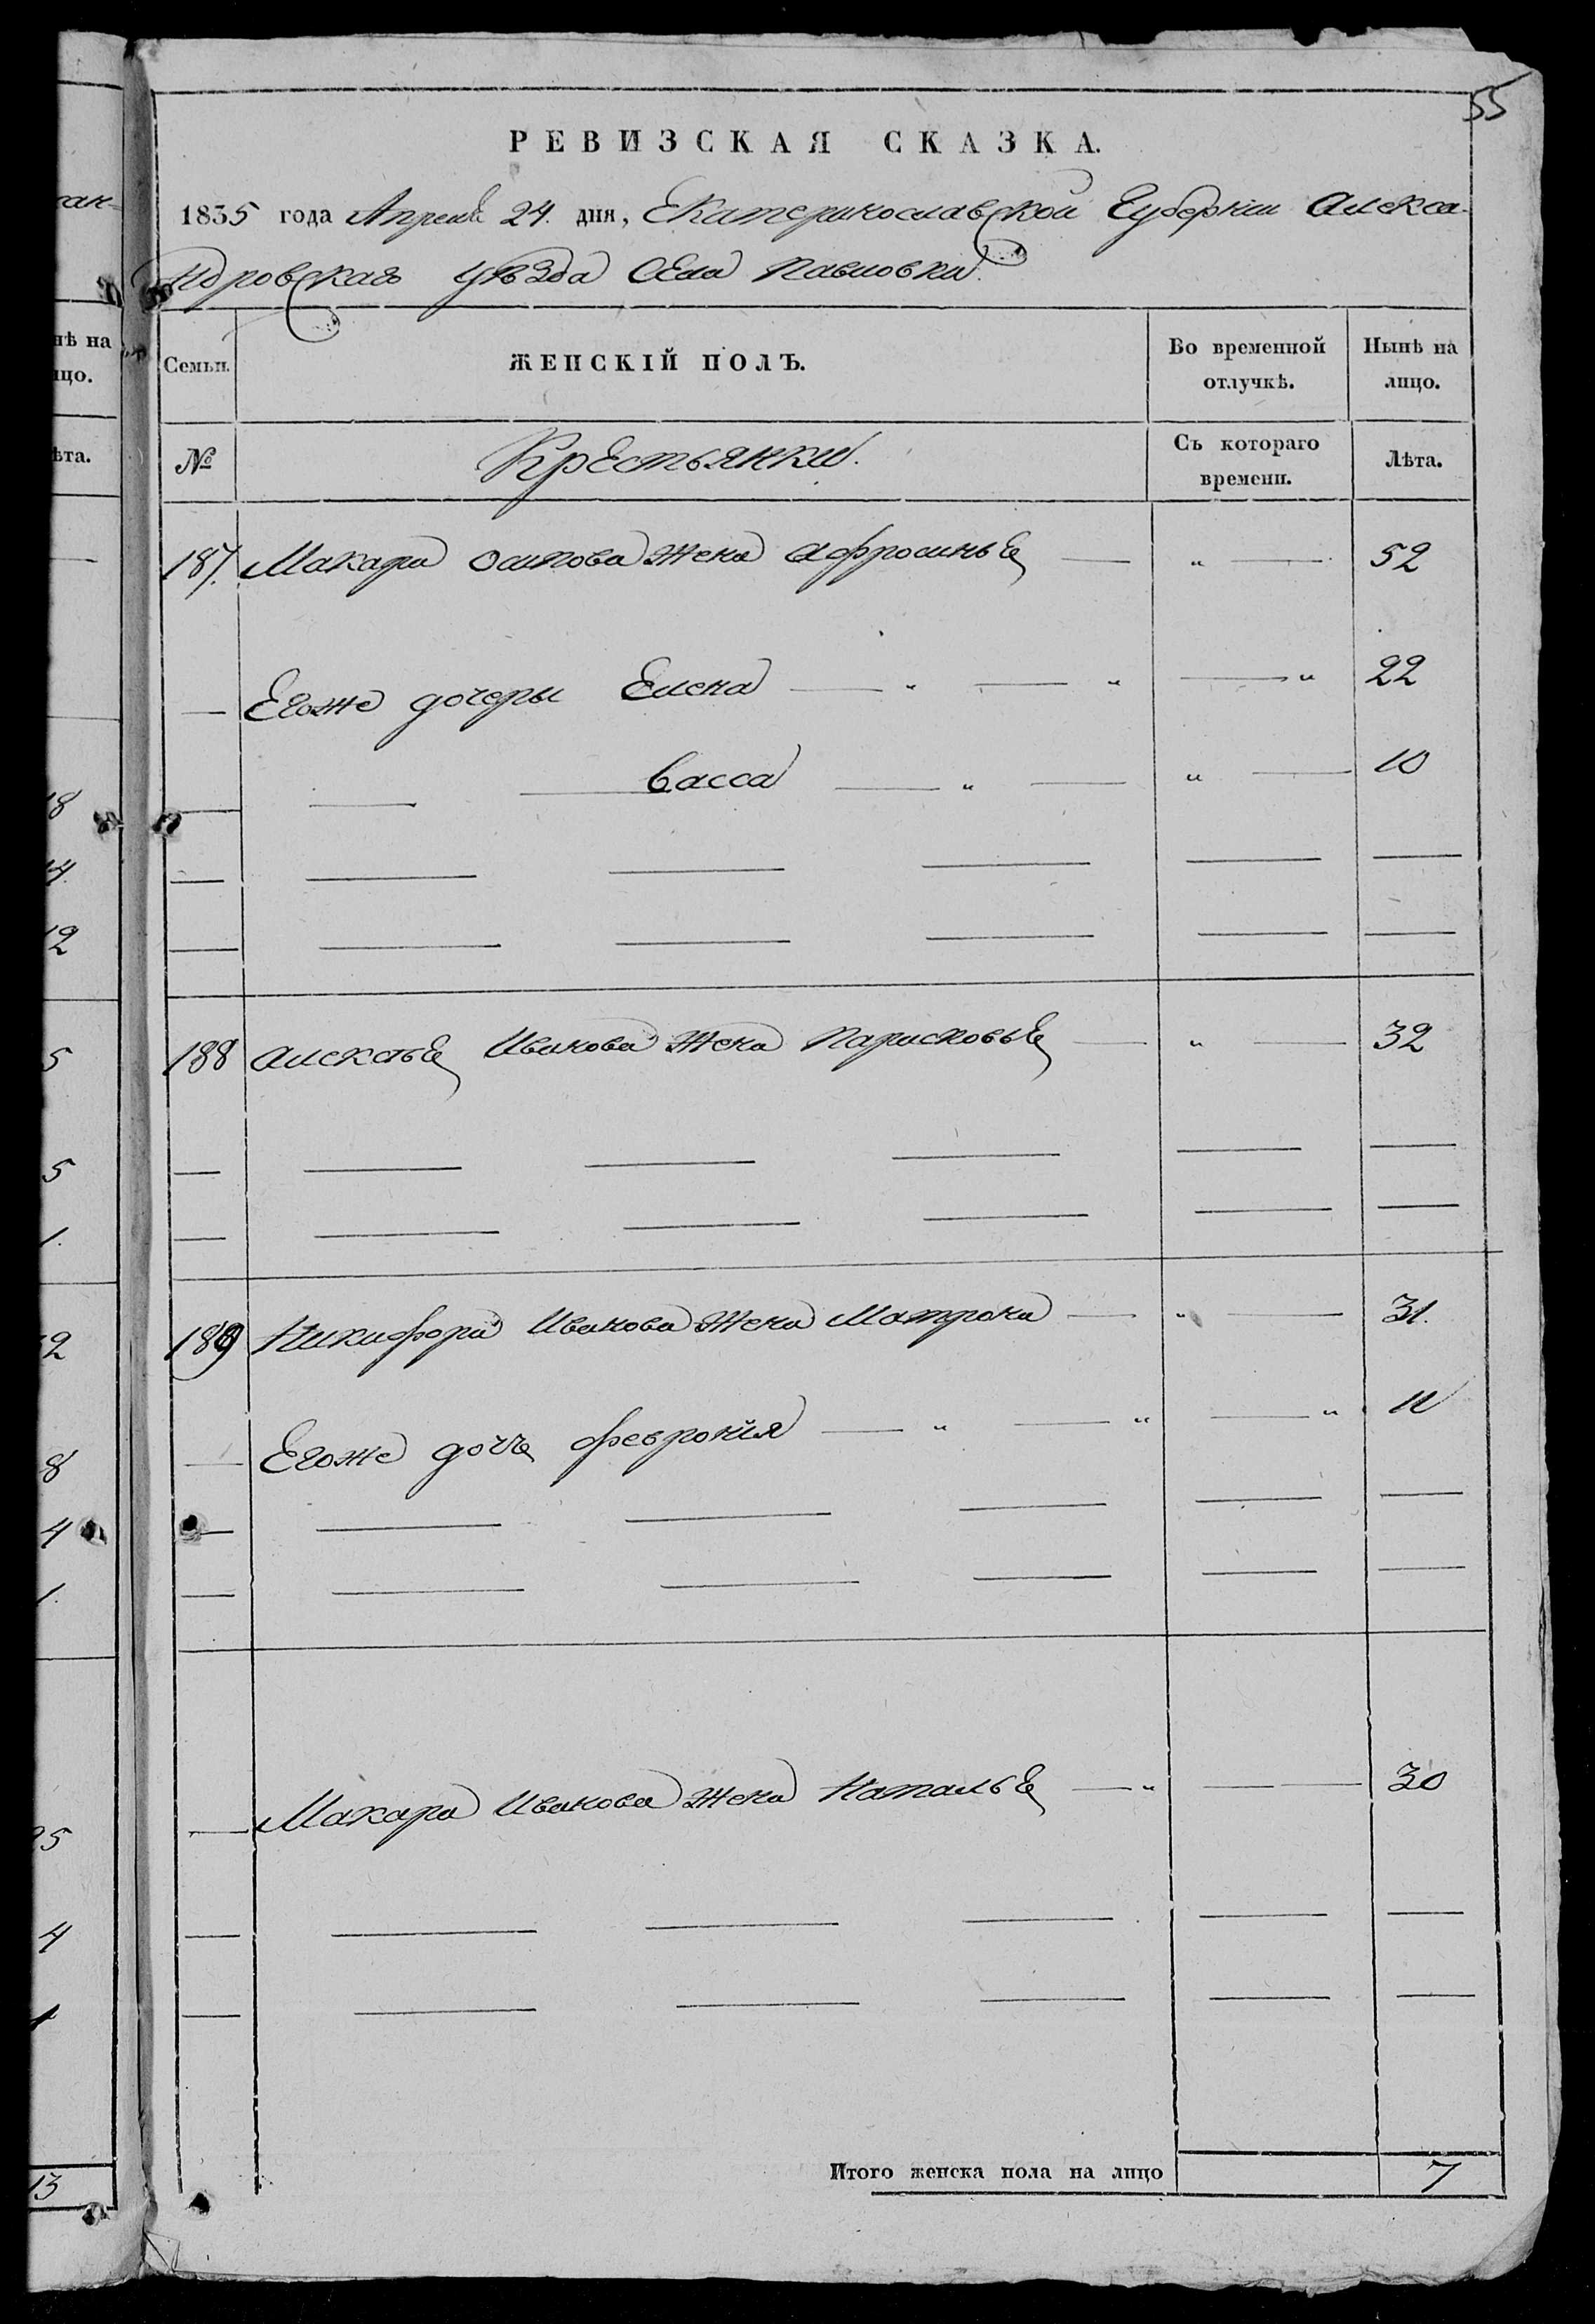 55
РЕВИЗСКАЯ СКАЗКА.
1835 года Апреля 24. дня, Екатеринославской Губернiи Алекса-
ндровскаго уѣзда Села Павловки.
Семьи.
ЖЕНСКІЙ ПОЛЪ.
Во временной
отлучкѣ.
Нынѣ на
лицо.
№
Крестьянки.
Съ котораго
времени.
Лѣта.
187. Макара Осипова жена Афросинья — " — 52
— Егоже дочеры Елена — " — " — " 22
— — — Васса — " — " — 10
188 Алексѣя Иванова жена Парасковья — " — 32
189 Никифора Иванова жена Матрона — " — 31.
— Егоже дочь Феврония — " — " — " 11
— Макара Иванова жена Наталья — " — 30
Итого женска пола на лицо 7
нѣ на
ицо.
ѣта.
18
14.
12
5
5
1.
2
8
4
1.
25
4
1
13